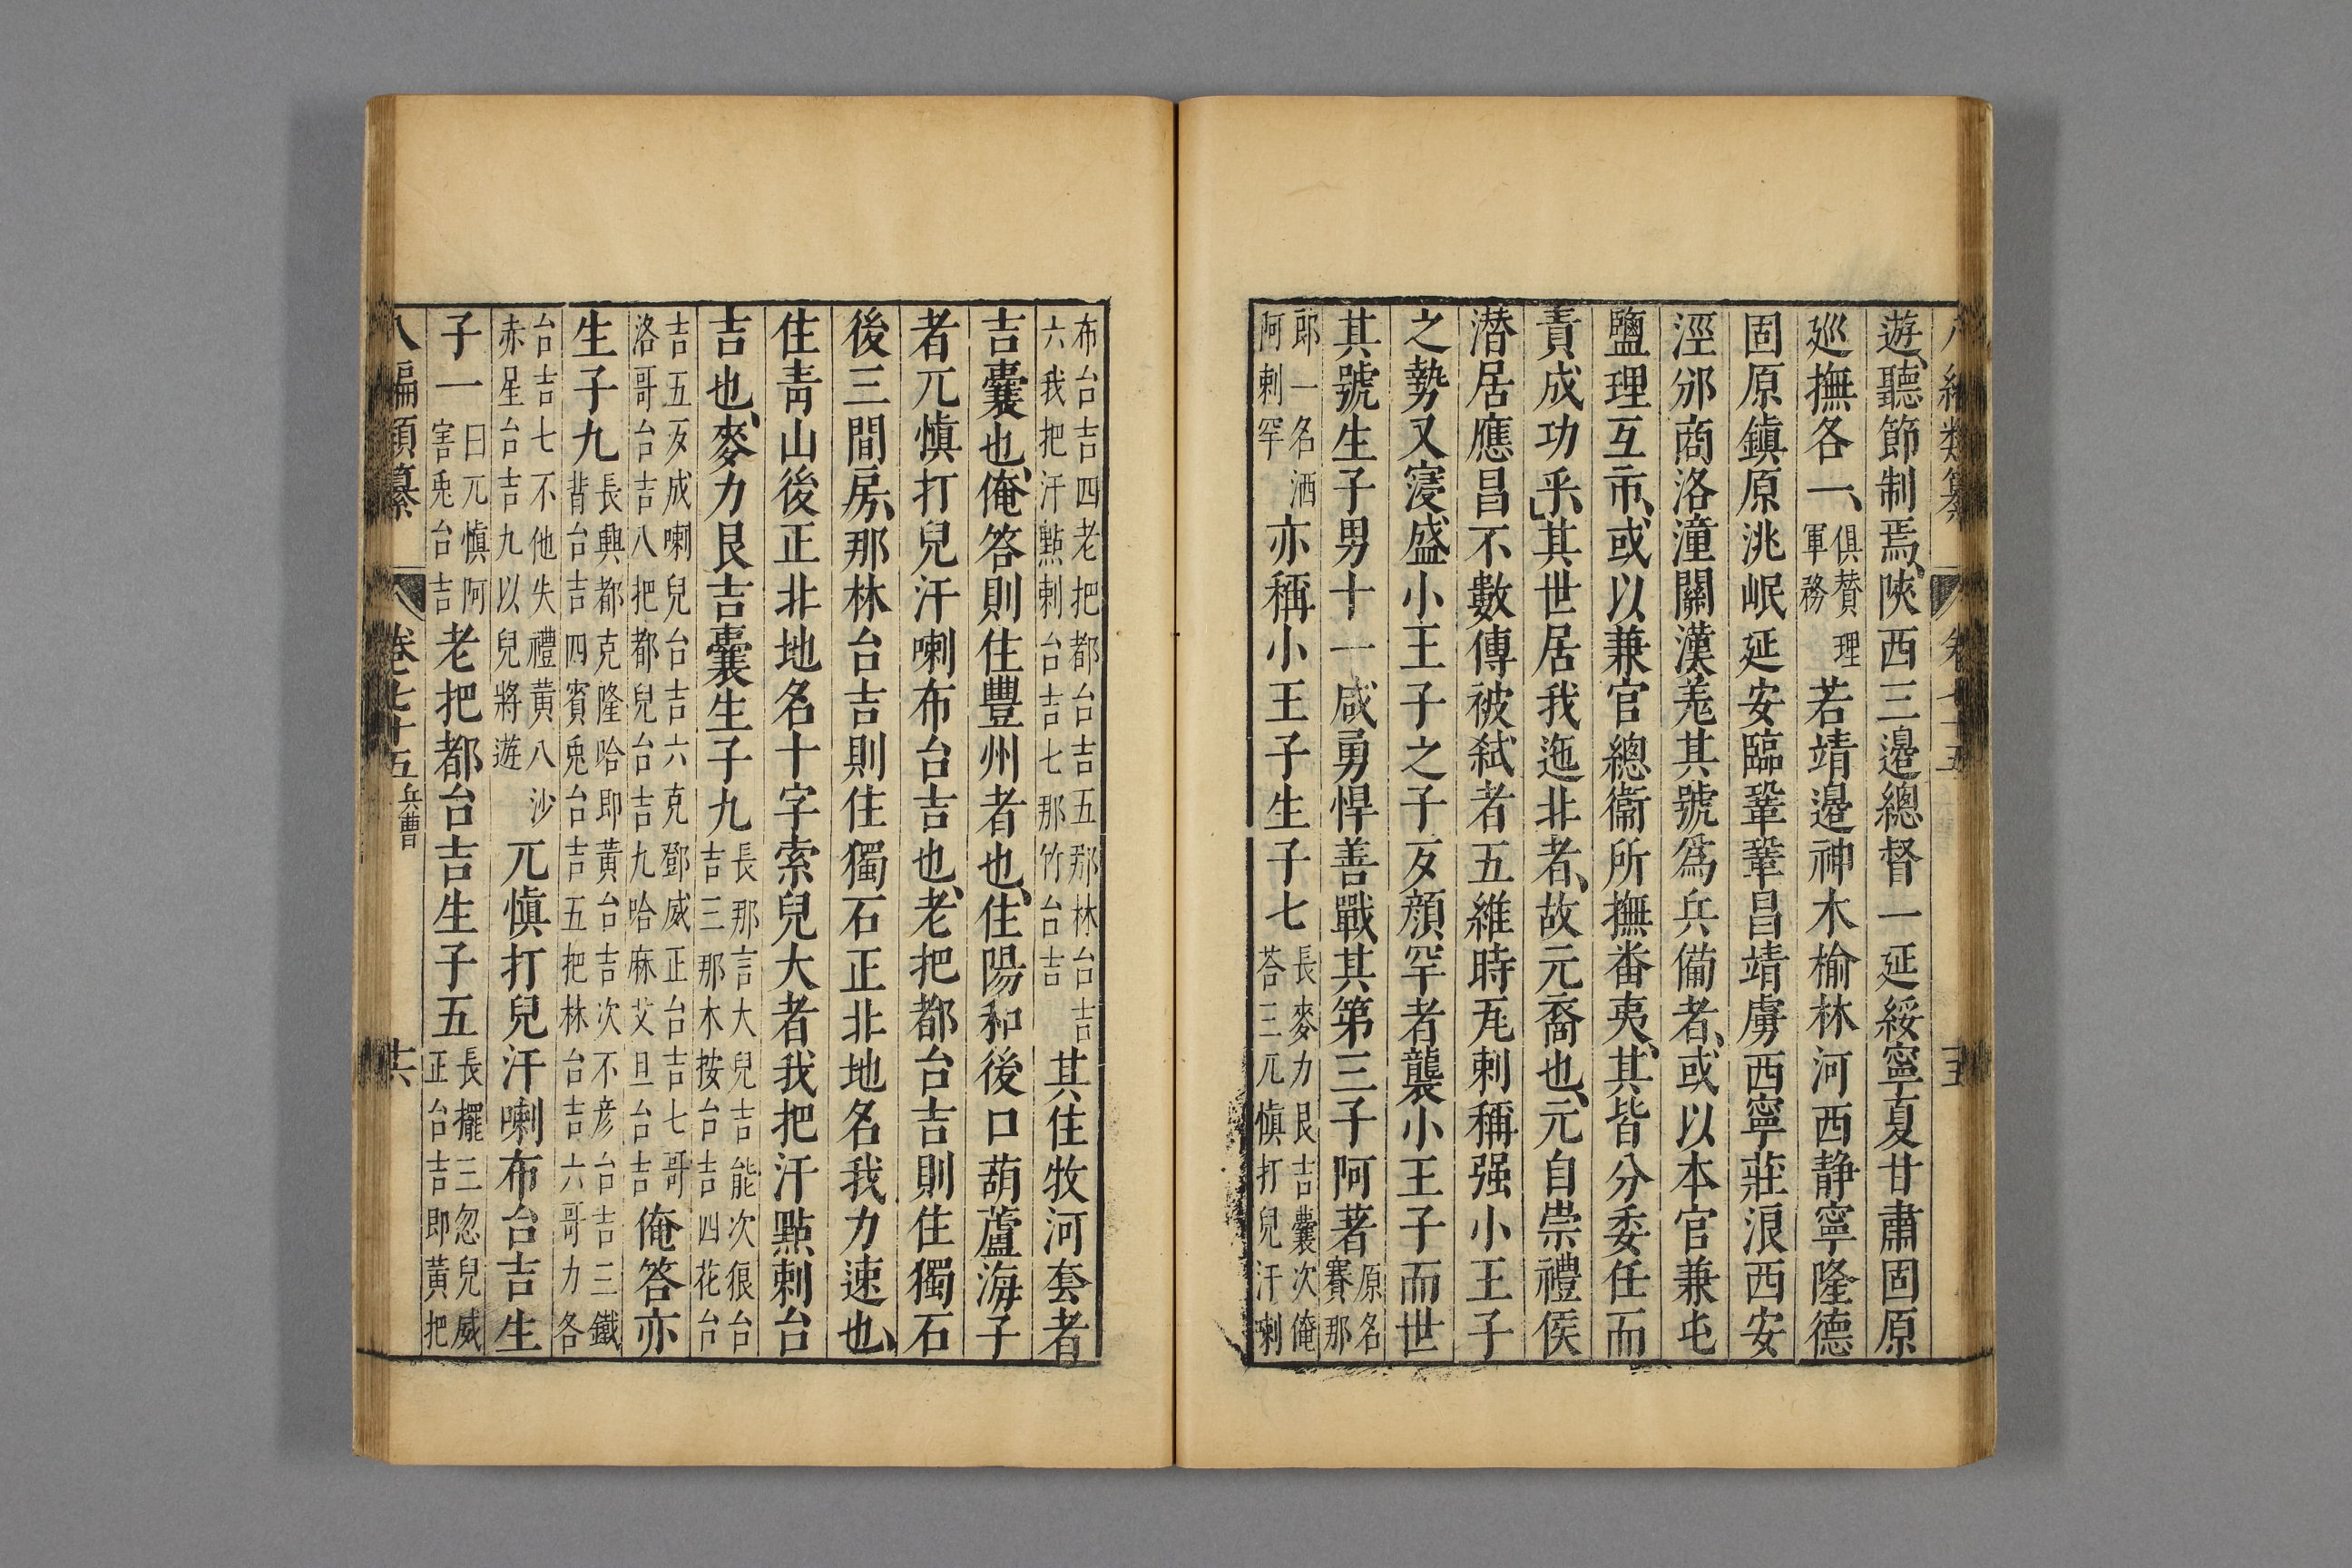 遊聽節制焉陝西三邉總督一延綏寧夏甘肅固原
廵撫各一俱賛理軍務若靖邉神木榆林河西静寧隆德
固原鎮原洮岷延安臨鞏鞏昌靖虜西寧莊浪西安
涇邠商洛潼關漢羗其號爲兵備者或以本官兼屯
鹽理互市或以兼官總衞所撫畨夷其皆分委任而
責成功乎其世居我迤北者故元裔也元自崇禮侯
潜居應昌不數傳被弑者五維時瓦剌稱强小王子
之勢又寖盛小王子之子歹顔罕者襲小王子而世
其號生子男十一咸勇悍善戰其第三子阿著原名賽那
郎一名洒阿剌罕亦稱小王子生子七長麥力艮吉囊次俺荅三兀慎打兒汗喇
布台吉四老把都台吉五那林台吉六我把汗㸃剌台吉七那竹台吉其住牧河套者
吉囊也俺答則住豐州者也住陽和後口葫蘆海子
者兀慎打兒汗喇布台吉也老把都台吉則住獨石
後三間房那林台吉則住獨石正北地名我力速也
住青山後正北地名十字索兒大者我把汗㸃剌台
吉也麥力艮吉囊生子九長那言大兒吉能次狼台吉三那木按台吉四花台
吉五歹成喇兒台吉六克鄧威正台吉七哥洛哥台吉八把都兒台吉九哈麻艾旦台吉俺答亦
生子九長興都克隆哈即黄台吉次不彦台吉三鐵背台吉四賓兎台吉五把林台吉六哥力各
台吉七不他失禮黄八沙赤星台吉九以兒將遊兀慎打兒汗喇布台吉生
子一曰元慎阿害兎台吉老把都台吉生子五長擺三忽兒威正台吉即黄把
八編類纂
卷七十五
兵曹
十六